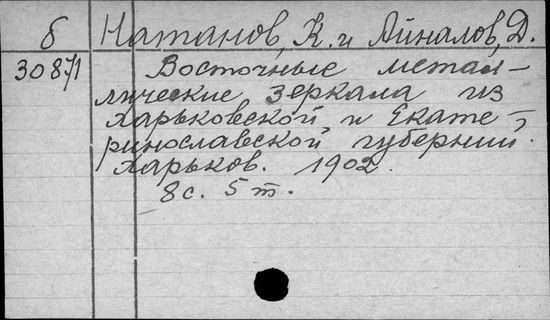 б Натанов, К. и Айналов, Д.
30871 Восточные метал-
лические зеркала из
Харьковской и Екате-
ринославской губернии.
Харьков. 1902.
8 с. 5 т.